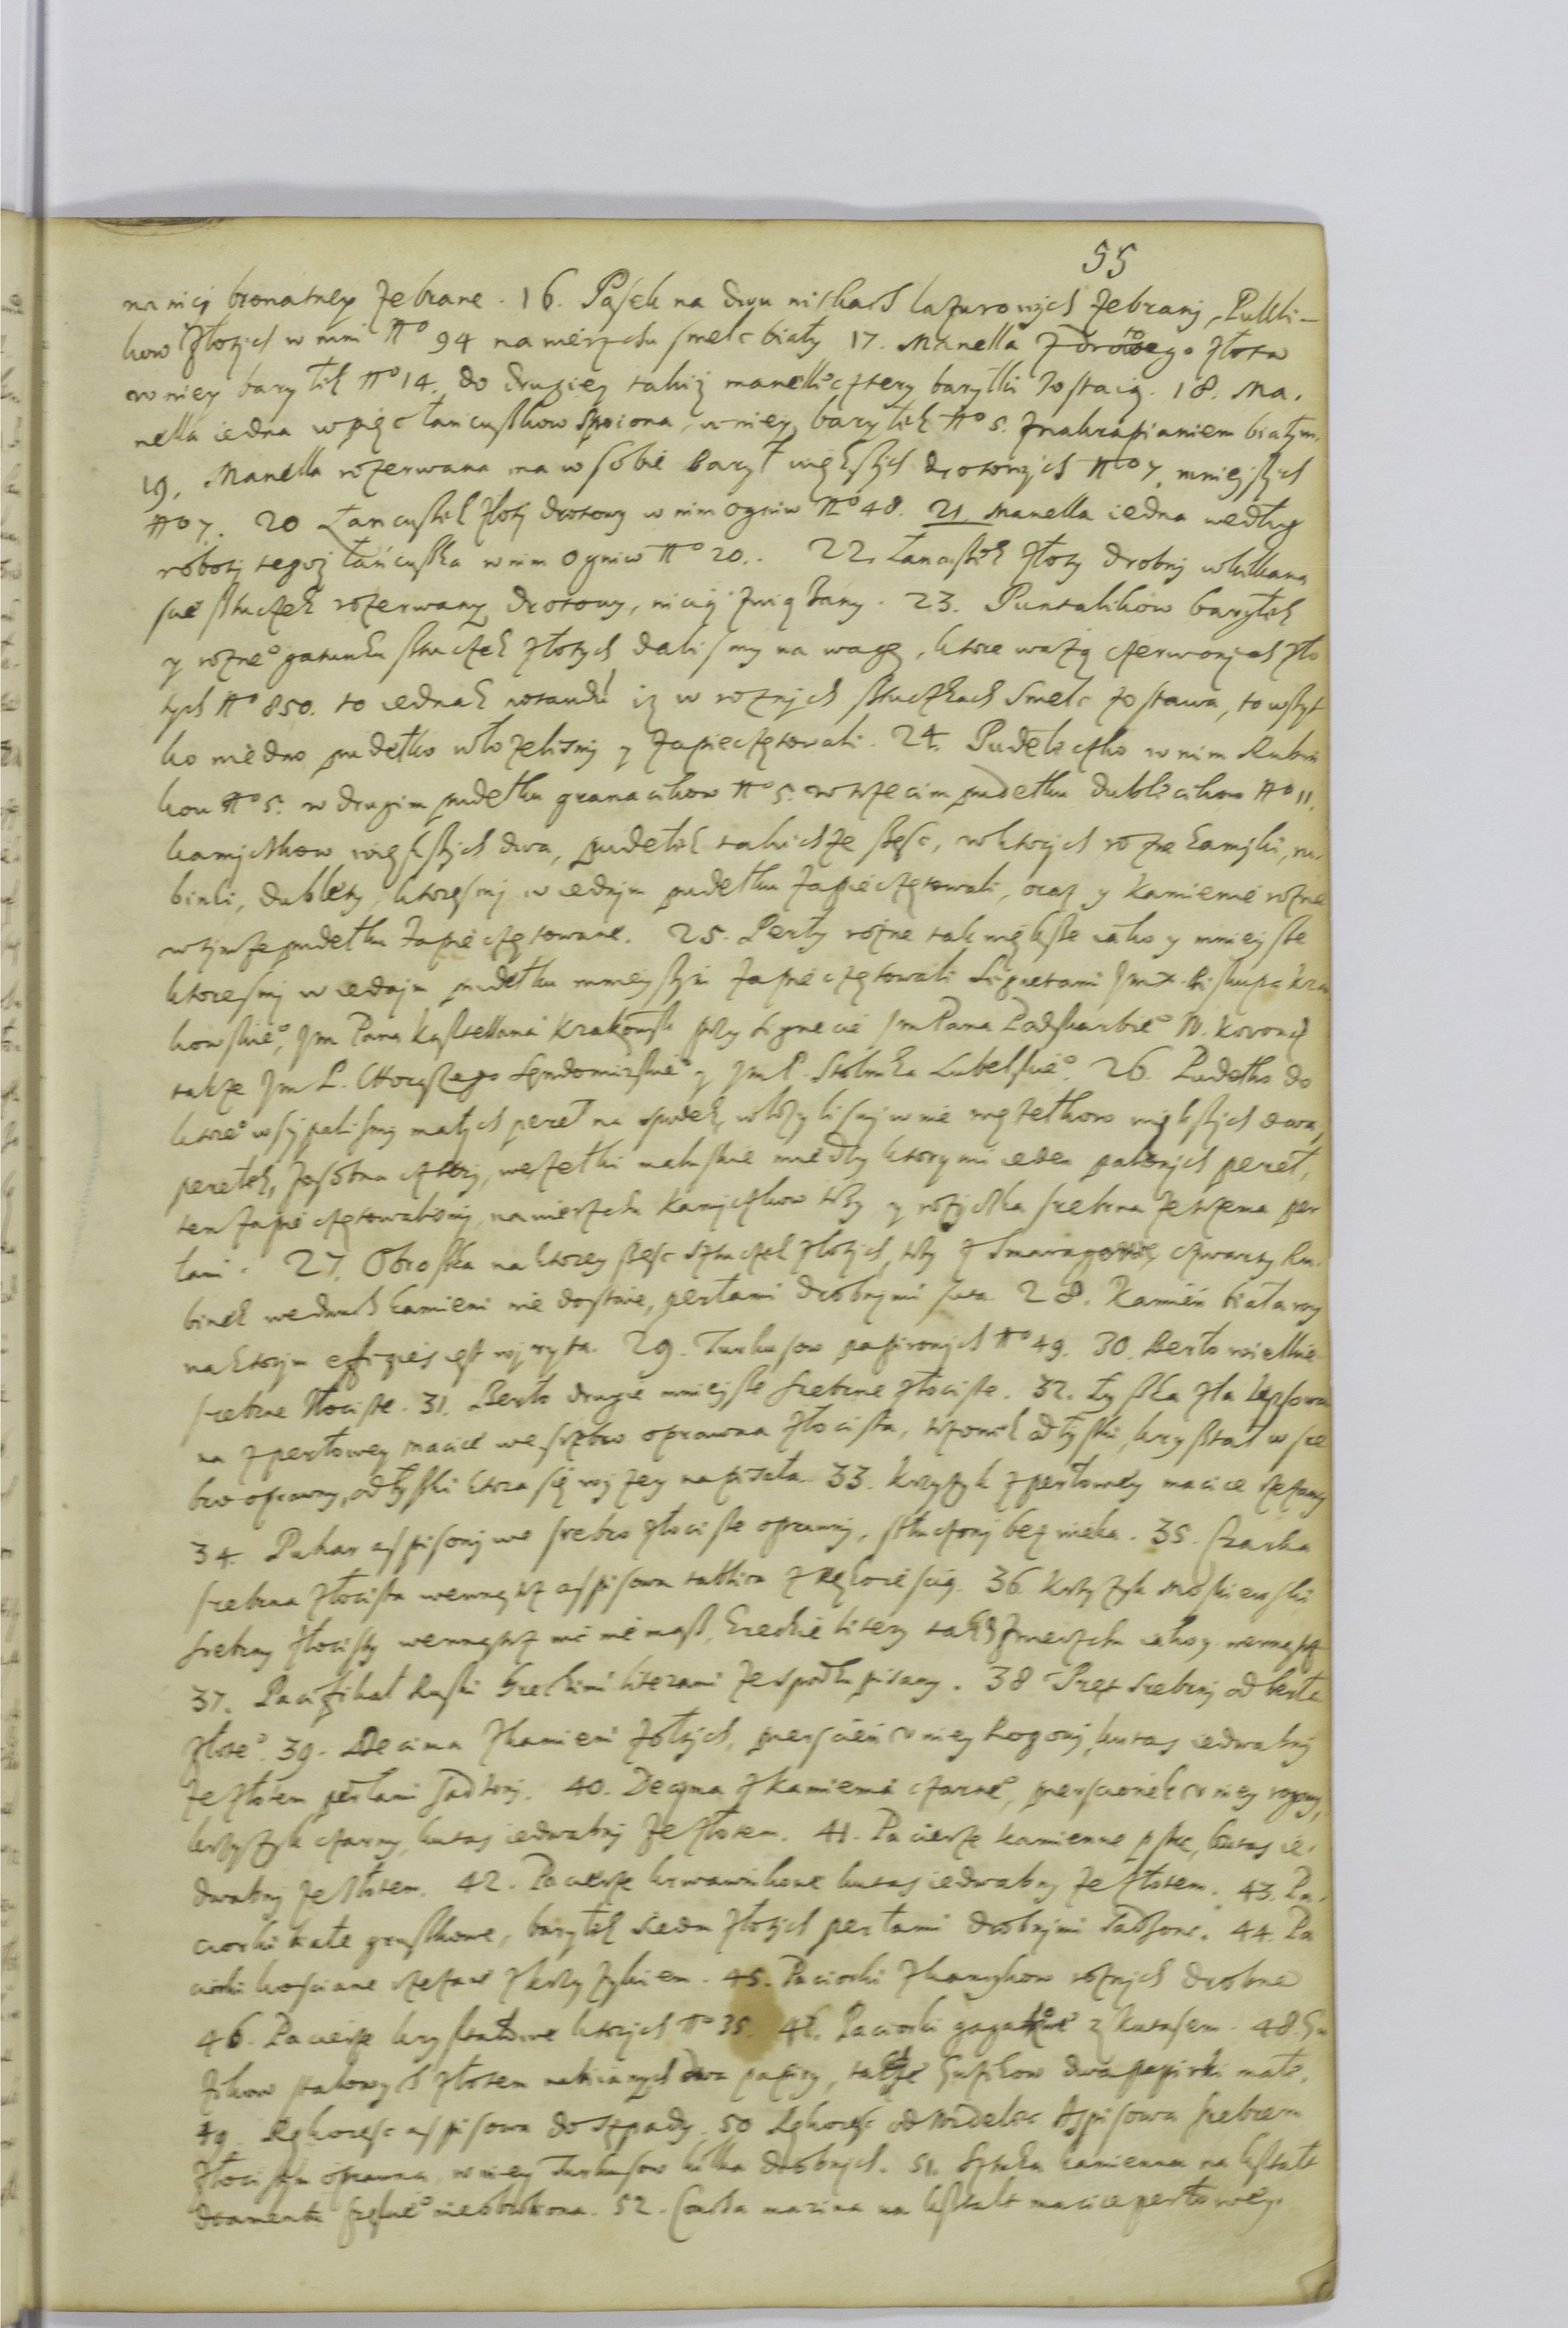 55
na nici bronatney zebrane. 16. Pasek na dwu nitkach lazurowych zebrany, Pukli-
kow złotych w nim No 94 na wierzchu smelc biały 17. Manella z drotowego złota
w niey baryłek No 14. do drugiey takiż manelli cztery baryłki zostaią. 18. Ma.
nella iedna w pięc łancuszkow spoiona, w niey baryłek No 5. z nakrapianiem białym.
19. Manella rozerwana ma w sobie barył większych drotowych No 7. mnieyszych
No 7. 20 Łancuszek złoty drotowy w nim ogniw No 48. 21. Manella iedna według
roboty tegoż łańcuszka w nim ogniw No 20.. 22. Łancuszek złoty drobny w kilkana
scie sztuczek rozerwany drotowy, nicią związany. 23. Puntalikow baryłek
y rozneo gatunku sztuczek złotych dalismy na wagę, ktore ważą czerwonych zło
tych No 850. to iednak notandū iż w roznych sztuczkach smelc zostawa, to wszyt
ko w iedno pudełko włozelismy y zapieczętowali. 24. Pudełeczko w nim Rubin
kow No 5. w drugim pudełku granacikow No 5. w trzecim pudełku dublecikow No 11.
kamyczkow większych dwa, pudełek takichze szesc, w ktorych rozne kamyki, ru.
binki, dublety, ktoresmy w iednym pudełku zapieczętowali, oraz y kamienie rozne
w tymze pudełku zapieczętowane. 25. Perły rożne tak większe iako y mnieysze
ktoresmy w iednym pudełku mnieyszym zapieczętowali Sigietami Jm X. Biskupa Kra
kowskieo, Jm Pana Kasztellana Krakowsk przy sygnecie Jm Pana Podskarbieo W. Koronneo
także Jm P. Chorążego Sendomirskieo y Jm P. Stolnika Lubelskieo. 26. Pudełko do
ktoreo wsypalismy małych pereł na spodek, włozylismy w nie węzełkow większych dwa,
perełek, zosobna cztery, węzełki maluskie miedzy ktorymi ieden palonych pereł,
ten zapieczętowalismy, na wierzchu kamyczkow trzy y rożyczka srebrna ze trzema per
łami. 27. Obroszka na ktorey szesc sztuczek złotych, trzy z smaragami, czwarty Ru.
binek we dwuch kamieni nie dostaie, perłami drobnymi suta 28. Kamień białawy
na ktorym effigies iest wyryta. 29. Turkusow papirowych No 49. 30. Berło wielkie
srebrne złociste. 31. Berło drugie mnieysze srebrne złociste. 32. Łyszka zła zepsowa
na z perłowey macice we srzebro oprawna złocista, trzonek od łyszki, krysztal w sre
bro oprawny, od łyszki ktora się wyzey napisała. 33. Krzyzyk z perłowey macice rzezany
34. Puhar aspisowy we srebro złociste oprawny, stłuczony bez wieka. 35. Czarka
srebrna złocista wewnątrz aspisowa tablica z rękoieścią. 36 Krzyzyk Moskiewski
srebrny złocisty wewnątrz nic nie masz, Greckie litery tak zwierzchu iako y wewnątrz
37. Pacifikał Ruski Greckimi literami ze spodku pisany. 38 Pręt srebrny od berła
złoteo. 39. Decima z kamieni żołtych, pierscień v niey Rogowy, kutas iedwabny
ze złotem perłami sadzony. 40. Decyma z kamienia czarneo, pierscionek v niey rogowy,
krzyzyk czarny, kutas iedwabny ze złotem. 41. Pacierze kamienne pstre, kutas ie.
dwabny ze złotem. 42. Pacierze krwawnikowe kutas iedwabny ze złotem. 43. Pa.
ciorki białe gruszkowe, baryłek siedm złotych perłami drobnymi sadzone. 44. Pa
ciorki kosciane rzezane z krzyzykiem. 45. Paciorki z kamykow rożnych drobne
46. Pacierze krysztalowe ktorych No 35. 47. Paciorki gagatkowe z kutasem. 48. Gu
zikow stalowych złotem nabiianych dwa papiry, także Guzikow dwa papirki małe.
49. Rękoiesc aspisowa do szpady. 50 Rękoieść od widelec Aspisowa srebrem
złocistym oprawna, w niey Turkusow kilka drobnych. 51. Sztuka kamienna na kształt
diamentu nieobrobiona. 52. Concha marina na kształt macice perłowey.